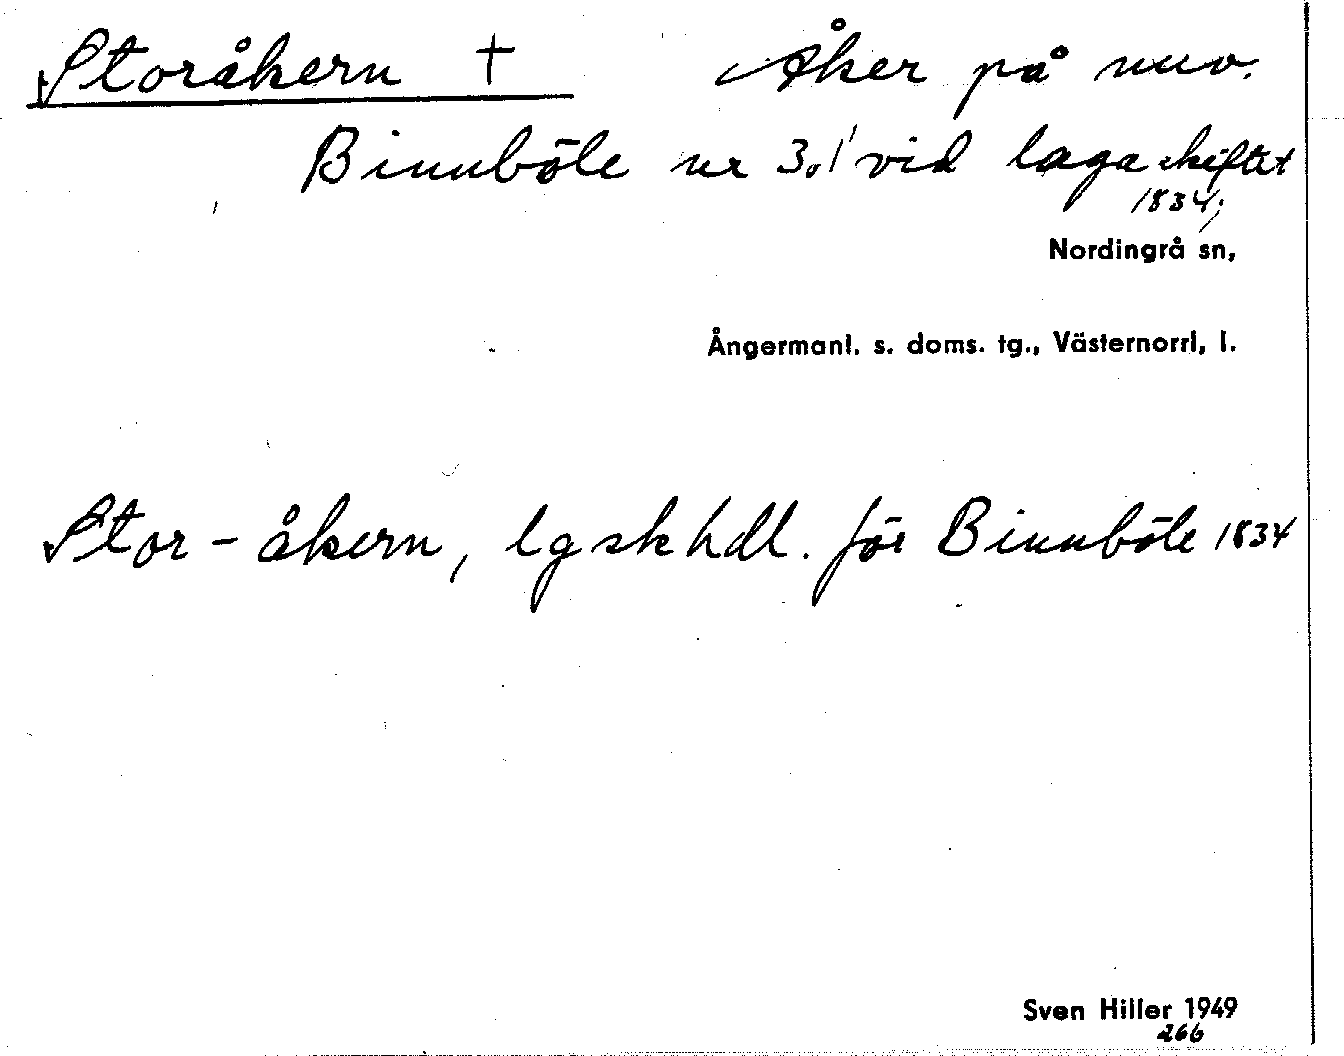 Storåkern † Åker på nuv.
Binnböle nr 3,1 vid laga skiftet
1834;
Nordingrå sn,
Ångermanl. s. doms. tg., Västernorrl. l.
Stor-åkern, lgskhdl. för Binnböle 1834
Sven Hiller 1949
266